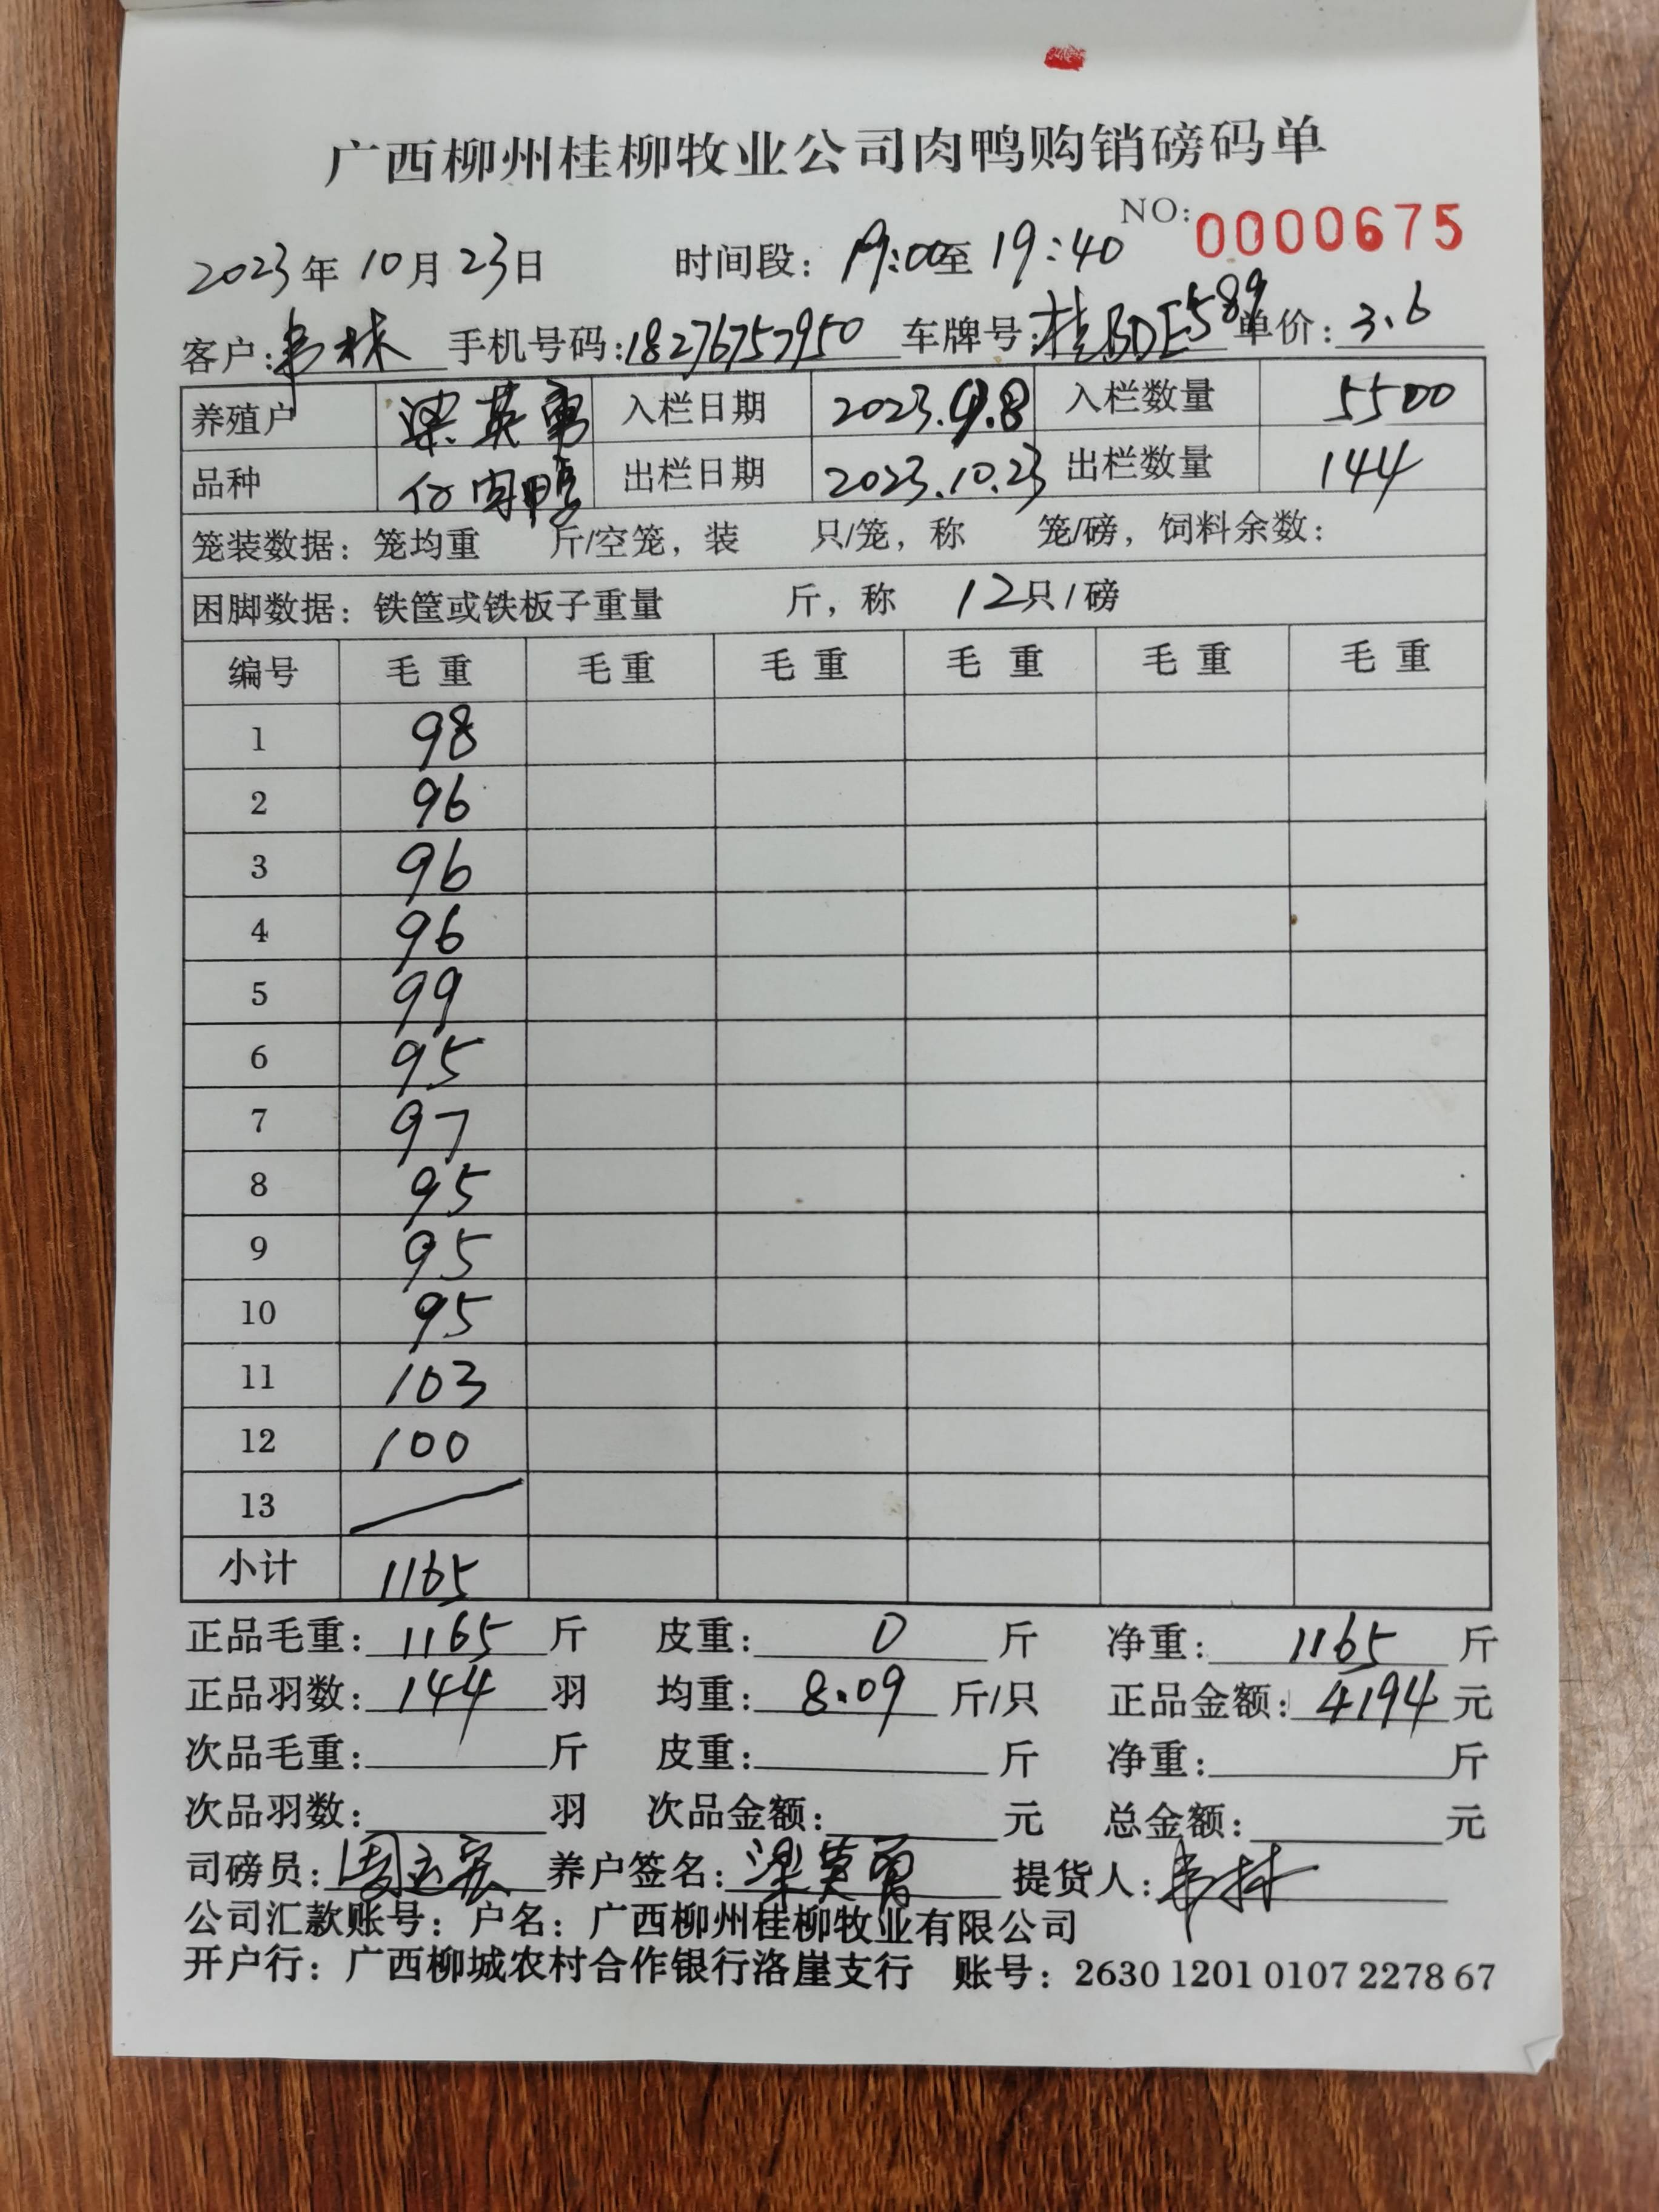 广西柳州桂柳牧业公司肉鸭购销磅码单
NO: 0000675
2023年10月23日 时间段: 19:00至19:40
客户:韦林 手机号码:18276757950 车牌号:桂BDE589 单价:3.6
养殖户 梁英勇 入栏日期 2023.9.8 入栏数量 5500
品种 仔肉鸭 出栏日期 2023.10.23 出栏数量 144
笼装数据:笼均重 斤/空笼,装 只/笼,称 笼/磅,饲料余数:
困脚数据:铁筐或铁板子重量 斤,称 12只/磅
编号 毛重 毛重 毛重 毛重 毛重 毛重
1 98
2 96
3 96
4 96
5 99
6 95
7 97
8 95
9 95
10 95
11 103
12 100
13
小计 1165
正品毛重:1165斤 皮重:0斤 净重:1165斤
正品羽数:144羽 均重:8.09斤/只 正品金额:4194元
次品毛重: 斤 皮重: 斤 净重: 斤
次品羽数: 羽 次品金额: 元 总金额: 元
司磅员: 养户签名:梁英勇 提货人:韦林
公司汇款账号:户名:广西柳州桂柳牧业有限公司
开户行:广西柳城农村合作银行洛崖支行 账号:2630 1201 0107 2278 67